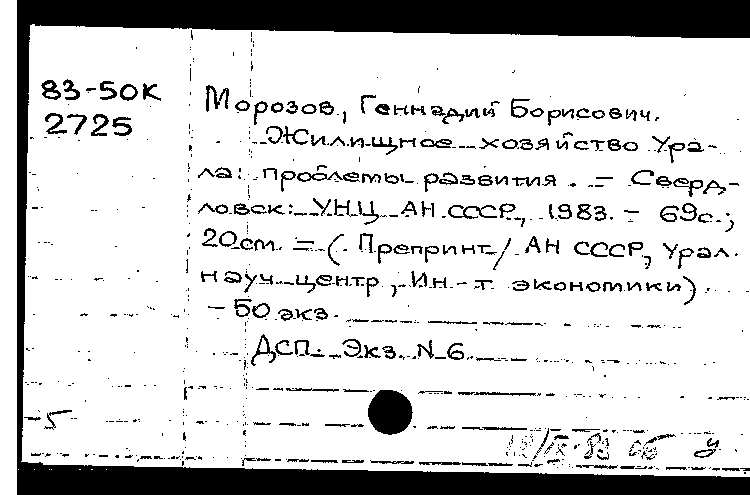 83-50К
2725
Морозов, Геннадий Борисович.
Жилищное хозяйство Ура-
ла: проблемы развития. - Сверд-
ловск: УНЦ АН СССР, 1983. - 69с.;
20см. = (Препринт / АН СССР, Урал.
науч. центр, Ин-т экономики).
- 50 экз.
ДСП. Экз. N 6
5
12/IX-83 у